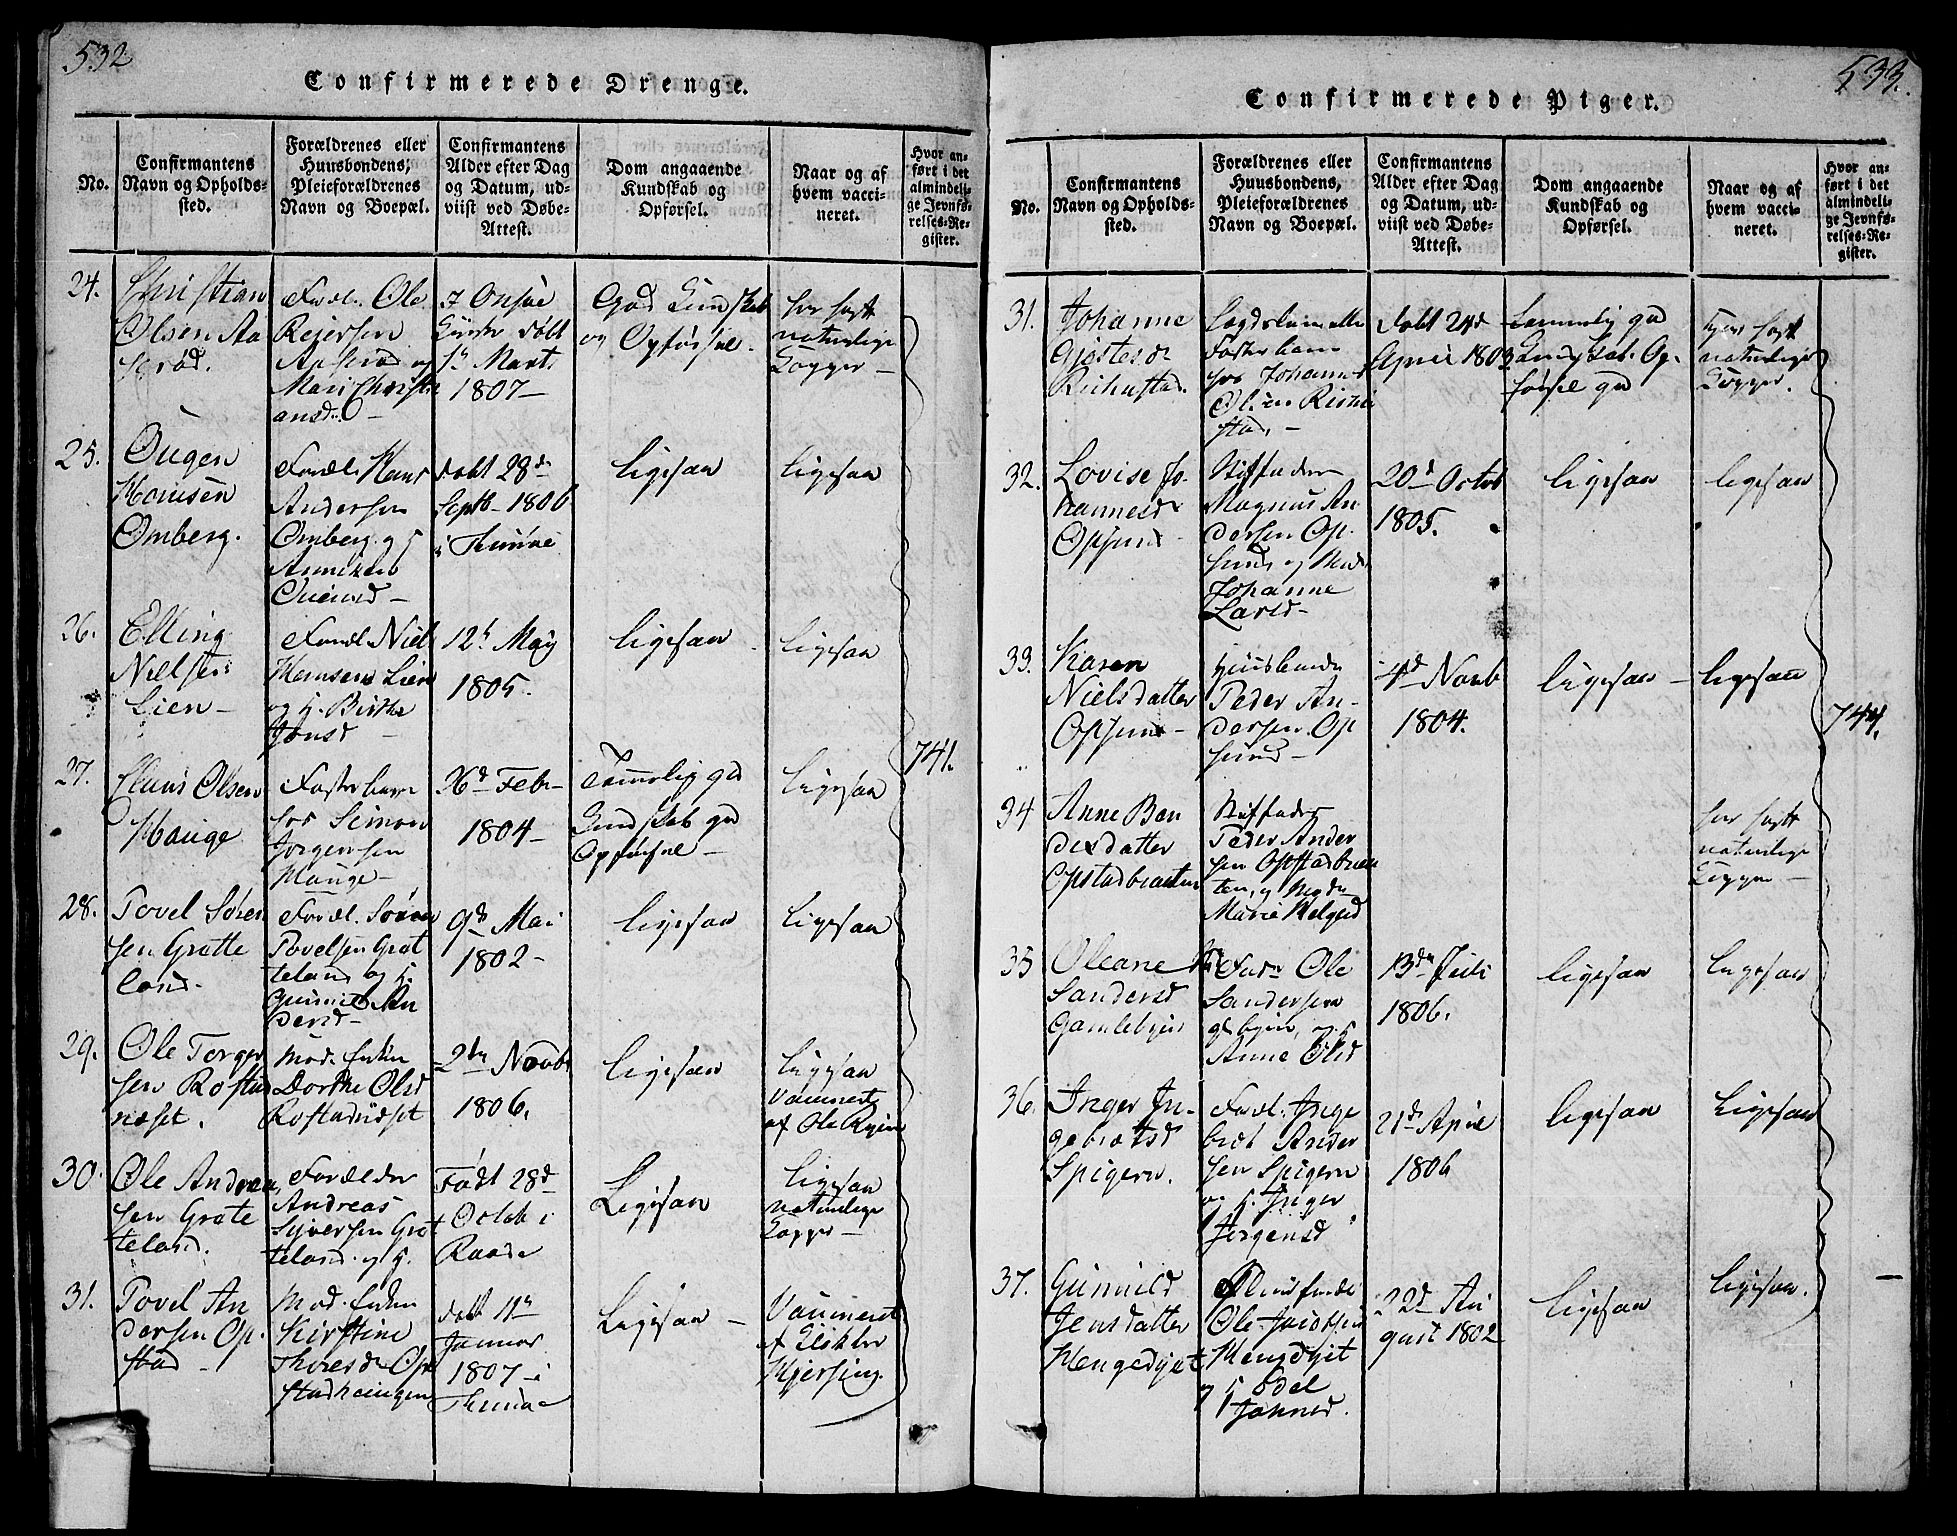 532
Confirmerede Drenge.
No.
Confirmantens
Navn og Opholds-
sted.
Forældrenes eller
Huusbondens,
Pleieforældrenes
Navn og Boepæl.
Confirmantens
Alder efter Dag
og Datum, ud-
viist ved Døbe-
Attest.
Dom angaaende
Kundskab og
Opførsel.
Naar og af
hvem vacci-
neret.
Hvor an-
ført i det
almindeli-
ge Jevnfø-
relses-Re-
gister.
24.
Christian
Olsen Aa
serød.
Foræl. Ole
Reiersen
Aaserød og
Mari Christi
ansd. –
i Onsøe
født
Marts
1807 –
God Kundskab
og Opførsel.
har havt
naturlige
Kopper –
25.
Ougen
Hansen
Omberg.
Foræl. Hans
Andersen
Omberg og
Annixen
født 28de
Septb. 1806
i Thunøe
ligesaa
ligesaa
26.
Elling
Nielsen
Lien –
Foræl Niel
Hansen Lien
og h. Birthe
Jonsd –
12te May
1805.
ligesaa
ligesaa
27.
Claus Olsen
Hauge
Fosterbarn
hos Simon
Jorgensen
Hauge –
26de Febr
1804 –
Temmelig god
Kundskab god
Opførsel –
ligesaa
741.
28.
Povel Søren
sen Grotte
land.
Foræl. Søren
Povelsen Grot
teland og h.
Gunnild An
dersd –
9de Mai
1802 –
ligesaa
ligesaa
29.
Ole Torger
sen Rostad
næset.
Mod. Enken
Dorthe Olsd
Rostadnæset
2den Novbr
1806.
ligesaa
ligesaa
Vaccineret
af Ole Ryen
30.
Ole Andrea
sen Grote
teland.
Forældre
Andreas
Syversen Grot
teland og h.
Født 28de
Octob i
Raade
Ligesaa
ligesaa
naturlige
Kopper –
31.
Povel An
dersen Op
stad –
Mod. Enken
Kirstine
Thoresd Op
stadhaugen
født 11te
Januar
1807 – i
Thunøe
Ligesaa –
Vaccineret
af Klokker
Hjersing.
533.
Confirmerede Piger.
No.
Confirmantens
Navn og Opholds-
sted.
Forældrenes eller
Huusbondens,
Pleieforældrenes
Navn og Boepæl.
Confirmantens
Alder efter Dag
og Datum, ud-
viist ved Døbe-
Attest.
Dom angaaende
Kundskab og
Opførsel.
Naar og af
hvem vacci-
neret.
Hvor an-
ført i det
almindeli-
ge Jevnfø-
relses-Re-
gister.
31.
Johanne
Gjostesd
Lægdslem eller
Fosterbarn
hos Johannes
Olsen
stad. –
Født 24de
April 1803
Temmelig god
Kundskab. Op-
førsel god
Hun havt
naturlige
Kopper.
32.
Lovise Jo-
hannesd
Opsund
Stiffader
Magnus An
dersen Op
sund og Mod
Johanne
Larsd –
20de Octob
1805.
ligesaa
ligesaa
33.
Karen
Nielsdatter
Opsund –
Huusbonde
Peder An-
dersen Op
sund –
4de Novb
1804.
ligesaa –
ligesaa
744.
34
Anne Ben
dixdatter
Opstadbraaten
Stiffader
Peder Ander
sen Opstadbraa
ten, og Moder
Marie Helgesd
har havt
naturlige
Kopper –
35
Oleane
Sandersd
Gamlebyen
Fader Ole
Sandersen
glbyen, og h
Anne Olsd
13de Juli
1806.
ligesaa
Ligesaa
36.
Inger In-
gebretsd
Spigern.
Foræl. Inge
bret Ander
sen Spigern
og h. Inger
Jorgensd
21de April
1806
ligesaa
Ligesaa
37.
Gunnild
Jensdatter
Hengedyet
Ole Jacobsen
Hengdyet
og h Odel
Johnsd.
22de Au
gust 1802
ligesaa
ligesaa.
–